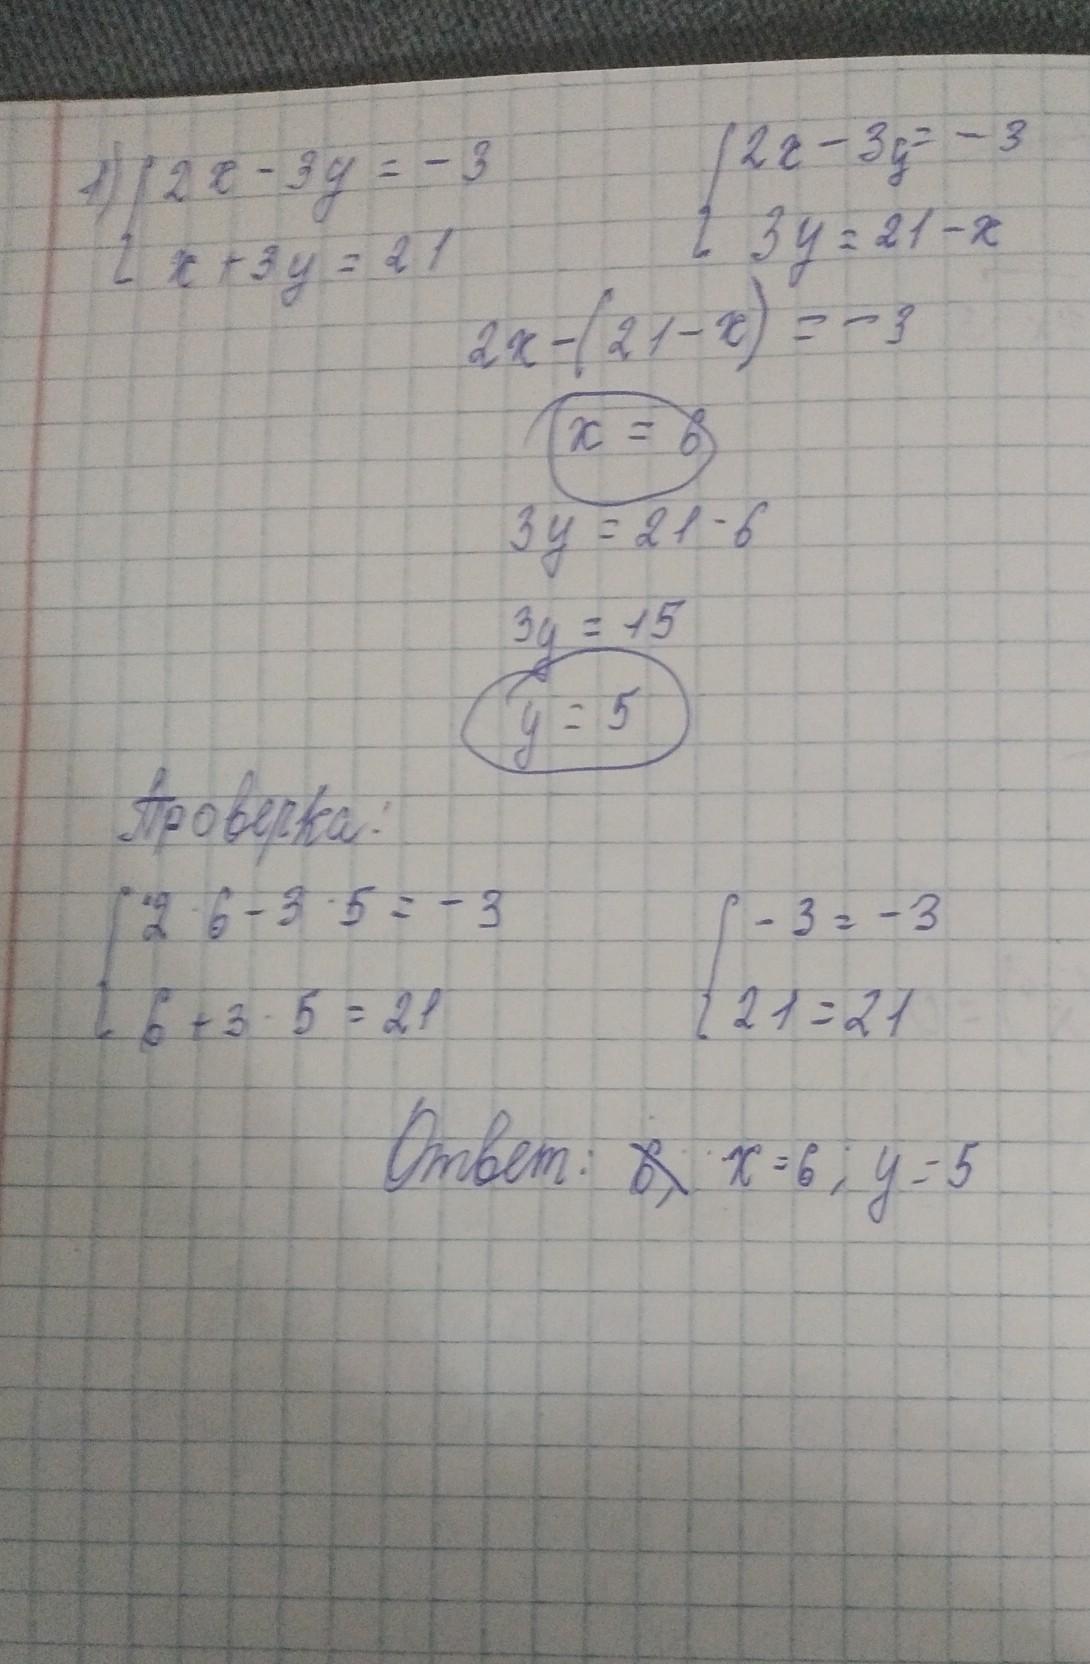 1) { 2x - 3y = -3
{ x + 3y = 21
{ 2x - 3y = -3
{ 3y = 21 - x
2x - (21 - x) = -3
x = 6
3y = 21 - 6
3y = 15
y = 5
Проверка:
{ 2 · 6 - 3 · 5 = -3
{ 6 + 3 · 5 = 21
{ -3 = -3
{ 21 = 21
Ответ: x = 6; y = 5